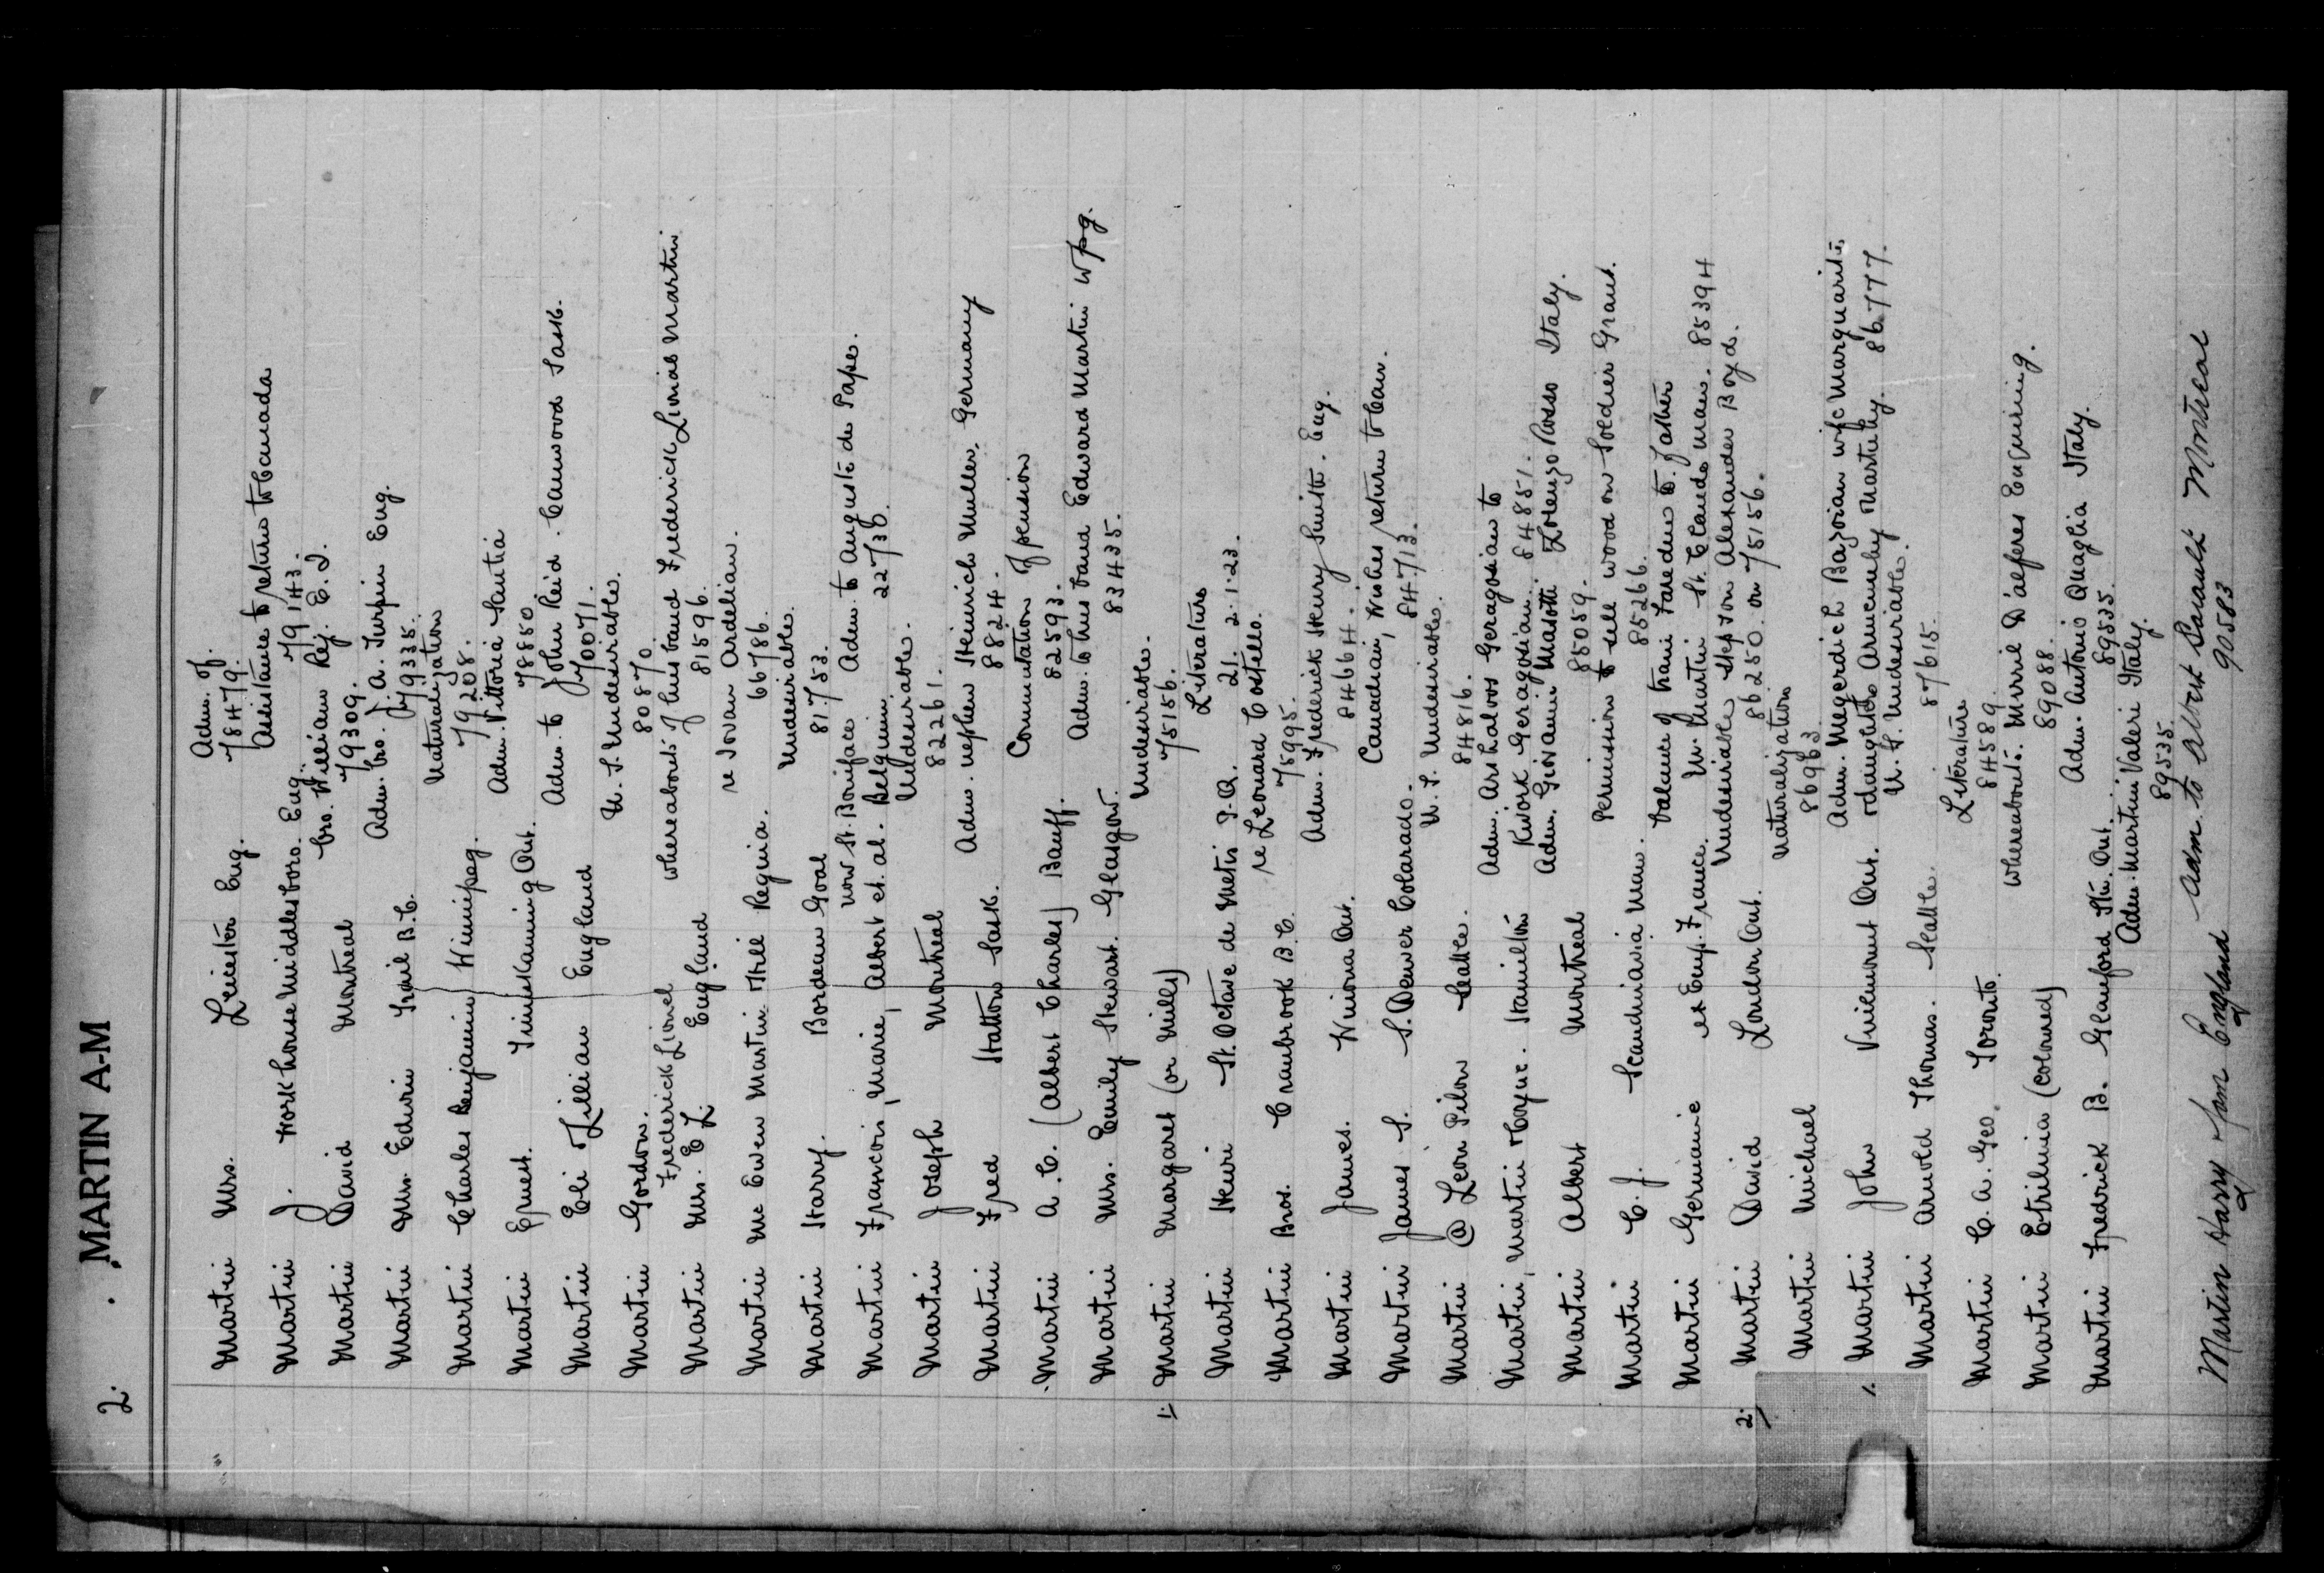 2. MARTIN A-M
Martin Mrs. Leicester Eng. Adm. of.
78479.
Martin J. Workhouse Middlesboro. Eng. Assistance to return to Canada
79143.
Martin David Montreal bro. William Rej. E.I.
79309.
Martin Mrs. Edwin Trail B.C. Adm. bro. J. A. Turpin Eng.
79335.
Martin Charles Benjamin Winnipeg. Naturalization
79208.
Martin Ernest. Timiskaming Ont. Adm. Vittoria Santia
78850.
Martin Eli & Lillian England Adm. to John Reid. Canwood Sask.
70071.
Martin Gordon. U.S. Undesirables.
80870.
Frederick Lionel
Martin Mrs. E L. England whereabouts of husband Frederick Lionel Martin
81596.
Martin Mc Ewen Martin & Hill Regina. re Jovan Ardelian.
66786.
Martin Harry. Bordeau Goal Undesirables.
81753.
Martin Francois, Marie, Albert et. al. Belgium now St. Boniface Adm. to Auguste de Pape.
22730.
Martin Joseph Montreal Undesirable.
82261.
Martin Fred Hatton Sask. Adm. nephew Heinrich Muller, Germany
8824.
Martin A. C. (Albert Charles) Banff. Commutation of pension
82593.
Martin Mrs. Emily Stewart. Glasgow. Adm. to husband Edward Martin Wpg.
83435.
1. Martin Margaret (or Mills) Undesirable.
75156.
Martin Henri St. Octave de Metis P.Q. Literature
21. 2.1.23.
Martin Bros. Cranbrook B.C. re Leonard Costello.
75995.
Martin James. Winona Ont. Adm. Frederick Henry Smith. Eng.
84664.
Martin James S. S. Denver Colorado. Canadian, wishes return to Can.
84713.
Martin @ Leon Pilon Seattle. U.S. Undesirable.
84816.
Martin, Martin & Coyne. Hamilton Adm. Arshaloos Geragosian to
Kwork Geragosian. 84851.
Martin Albert Montreal Adm. Giovanni Masotti Lorenzo Rosso Italy.
85059.
Martin C. J. Scandinavia Man. Permission to sell wood on Soldier Grant.
85266.
Martin Germaine ex Emp. France. balance of trans Paredus to. father
M. Martin St. Claude Man. 85394
2. Martin David London Ont. Undesirable stepson Alexander Boyd.
86250. on 75156.
Martin Michael Naturalization
86963.
1. Martin John Vinemount Ont. Adm. Megerdich Bazoian wife Marguarite,
& daughter Armenuhy Martuhy. 86777.
Martin Arnold Thomas. Seattle. U.S. Undesirable.
87615.
Martin C. A. Geo. Toronto. Literature
84589.
Martin Etrilinia (coloured) whereabouts. Mirril D'aeferes Enquiring.
89088.
Martin Fredrick B. Glanford Stn. Ont. Adm. Antonio Quaglia Italy.
89535.
Adm. Martini Valeri Italy.
89535.
Martin Harry & fam England Adm. to Albert Sarault Montreal
90583